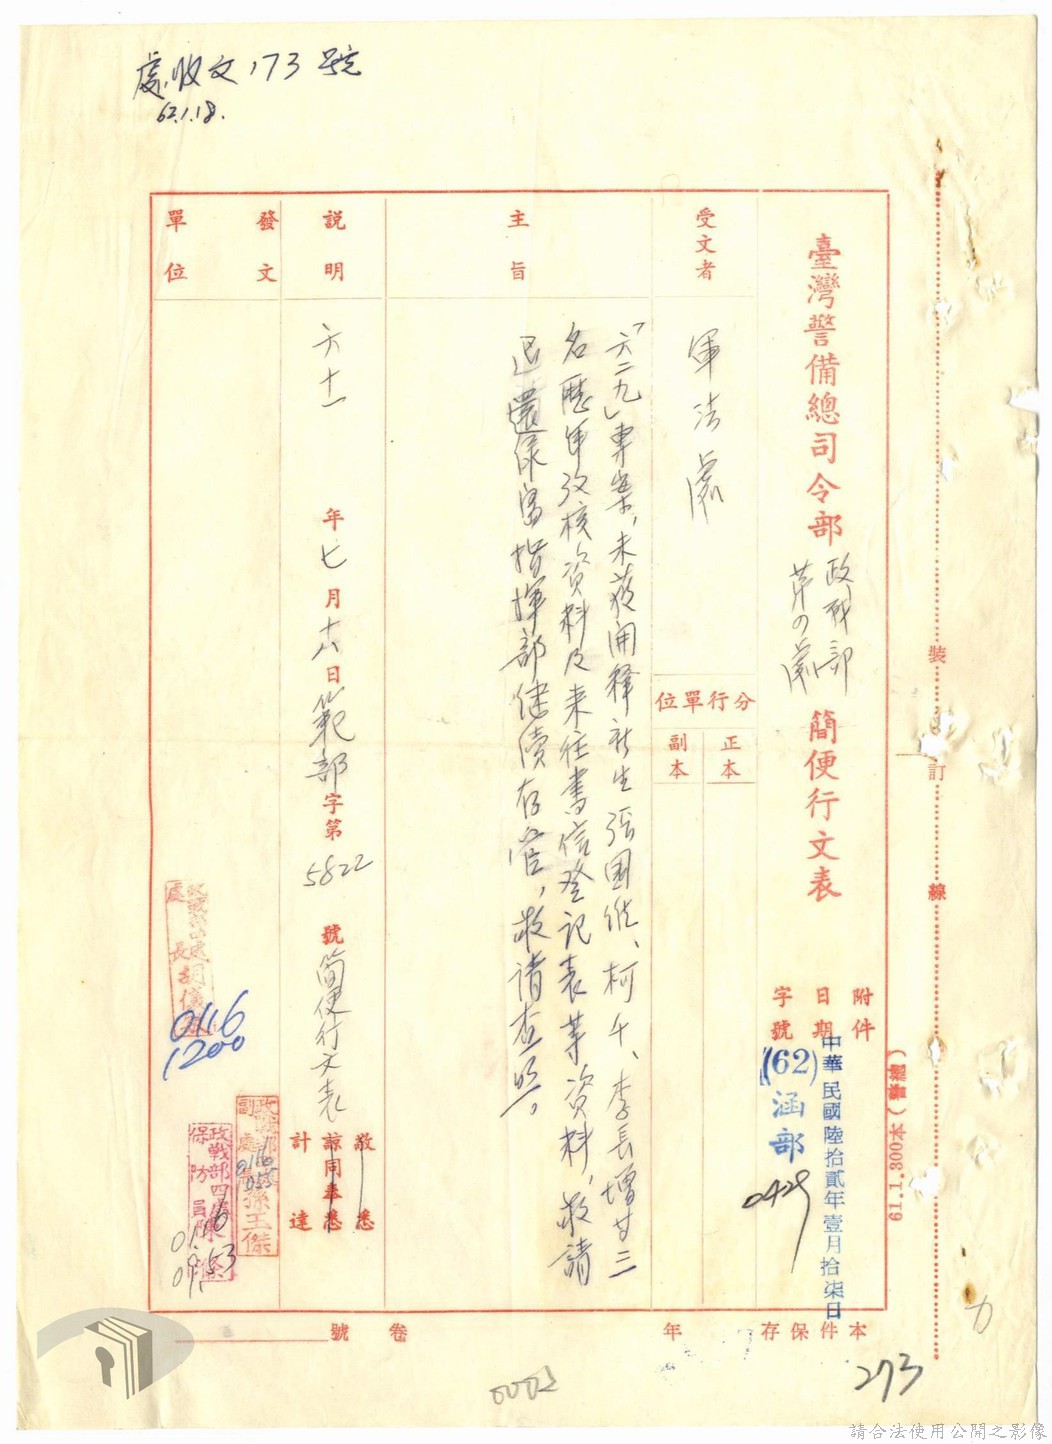 處收文173號
62.1.18.
臺灣警備總司令部
政戰部
第四處
簡便行文表
附件
日期
字號
中華民國陸拾貳年壹月拾柒日
(62)涵部
0429
受文者
軍法處
分行單位
正本
副本
主旨
「六二九」專案，未獲開釋新生張國維、柯千、李長增廿三
名歷年考核資料及來往書信登記表等資料，敬請
退還綠島指揮部繼續存管，敬請查照。
說明
六十一年七月十八日範部字第5822號簡便行文表
敬悉
諒同奉悉
計達
發文
單位
處長胡
0116
1200
政戰部
副處長孫玉傑
0116
政戰部四處
保防員陳
0116
0953
本件保存 年
卷 號
裝
訂
線
61.1.300本(警總)
273
0002
請合法使用公開之影像